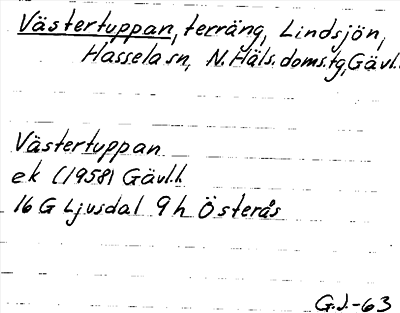 Västertuppan, terräng, Lindsjön,
Hassela sn, N. Häls. doms.tg, Gävl.
Västertuppan
ek (1958) Gävl.l.
16 G Ljusdal 9 h Österås
G.J.-63